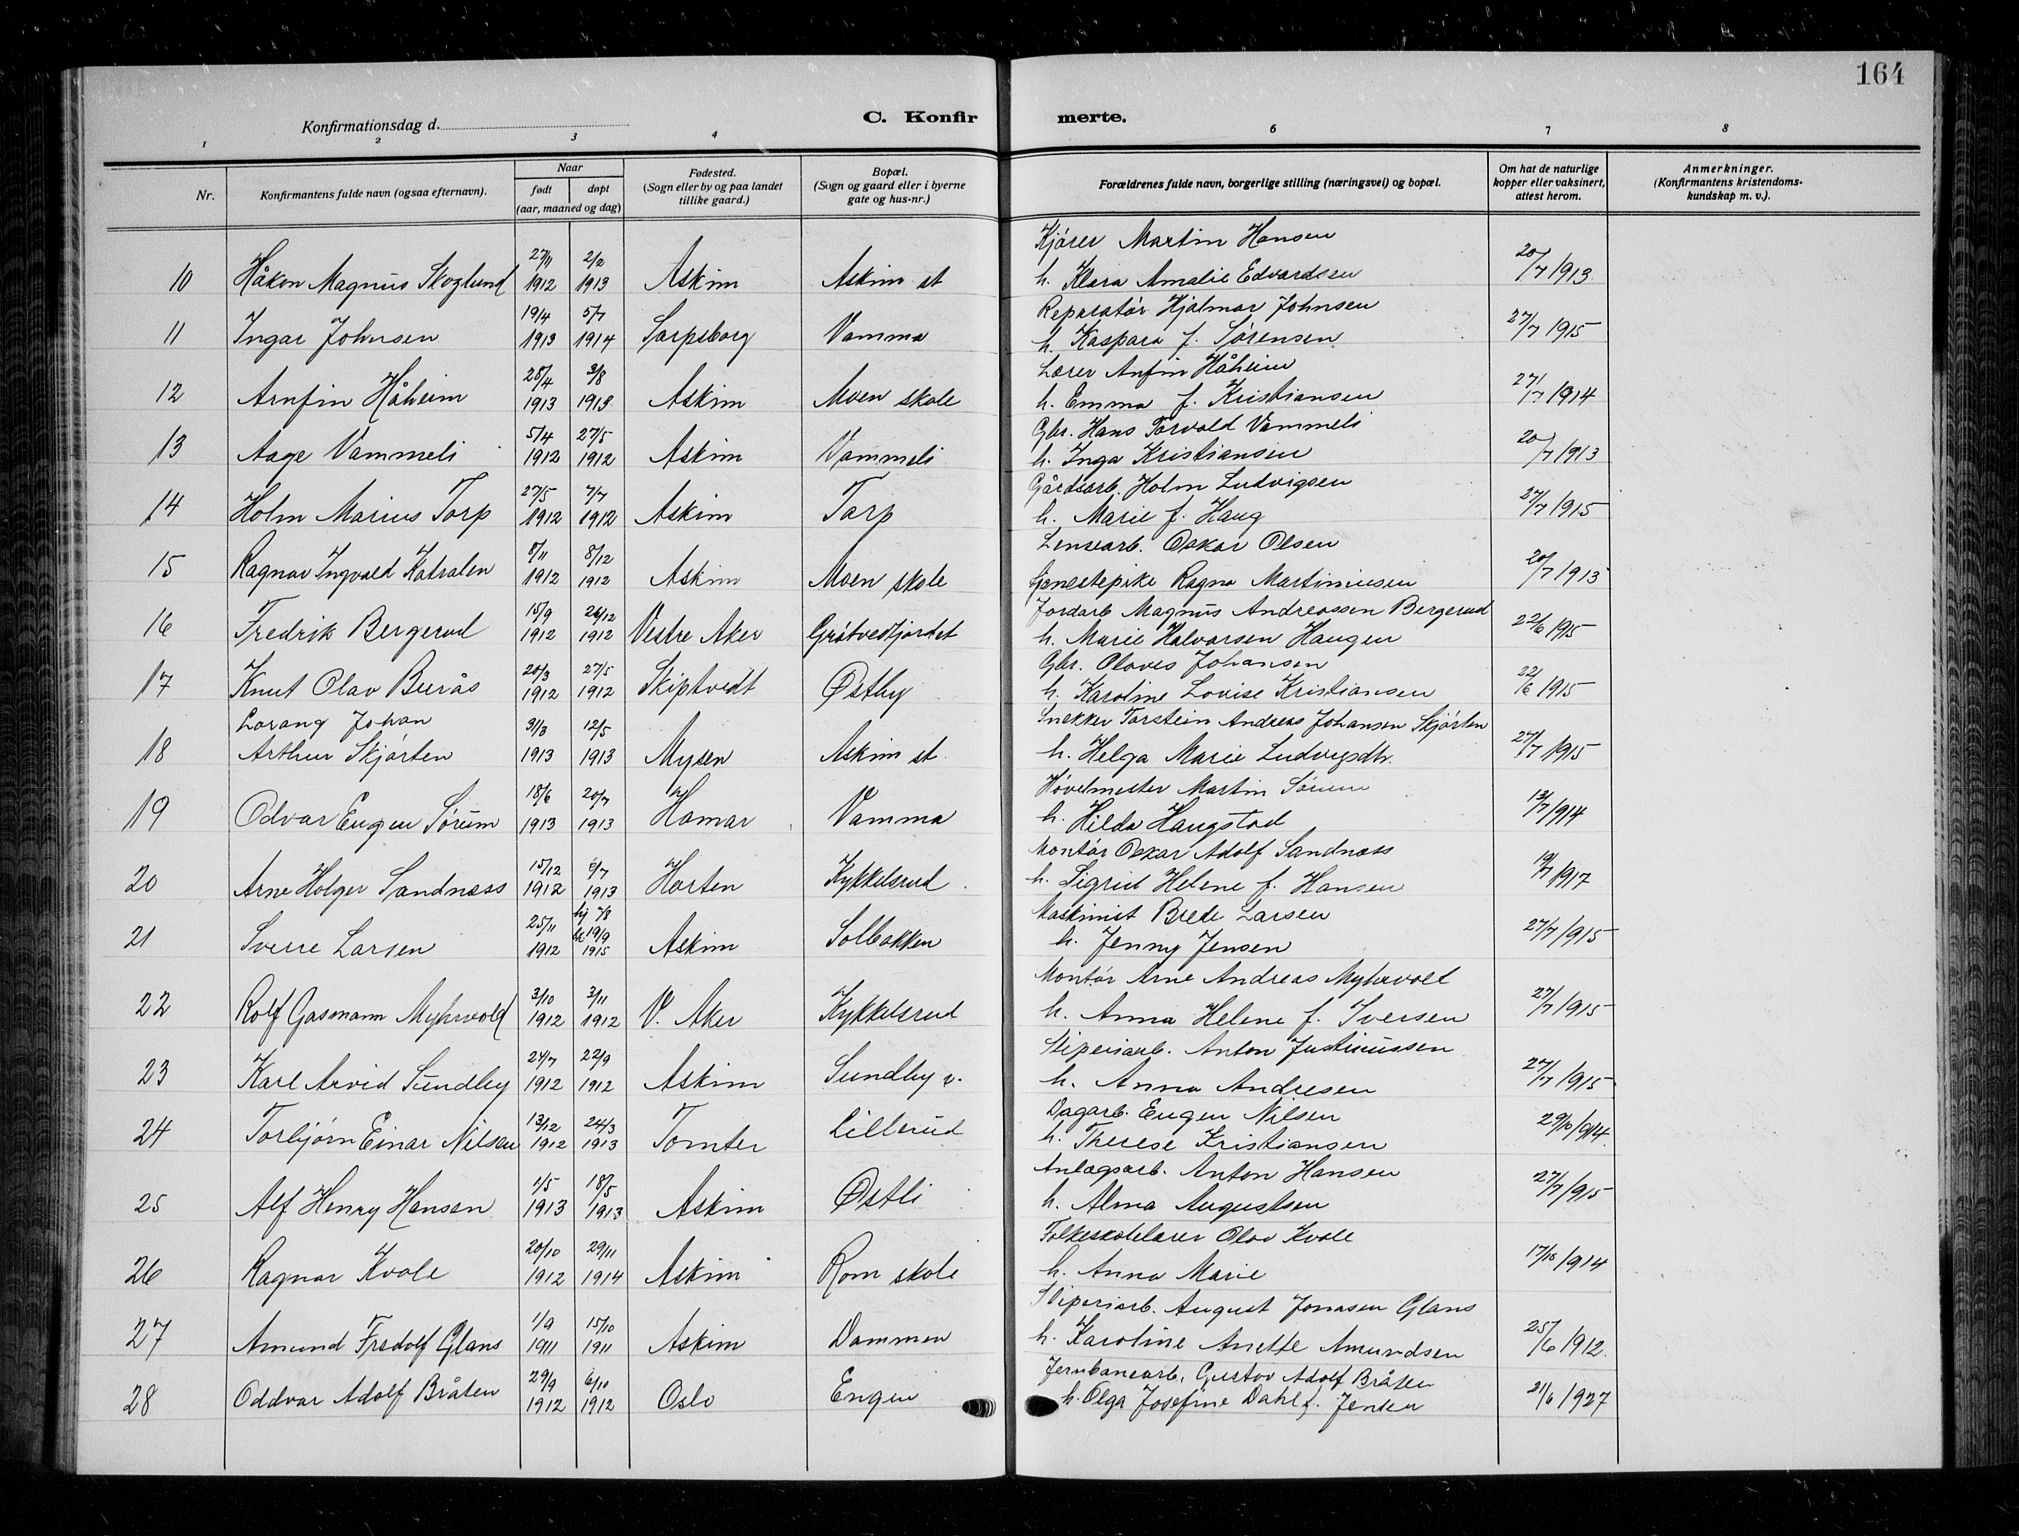 164
Konfirmationsdag d.
C. Konfirmerte.
1 2 3 4 6 7 8
Nr. | Konfirmantens fulde navn (ogsaa efternavn). | Naar født døpt (aar, maaned og dag) | Fødested. (Sogn eller by og paa landet tillike gaard.) | Bopæl. (Sogn og gaard eller i byerne gate og hus-nr.) | Forældrenes fulde navn, borgerlige stilling (næringsvei) og bopæl. | Om hat de naturlige kopper eller vaksinert, attest herom. | Anmerkninger. (Konfirmantens kristendomskundskap m. v.).
10 Håkon Magnus Skoglund 27/11 1912 2/2 1913 Askim Askim st Kjører Martin Hansen h. Klara Amalie Edvardsen 20/7 1913
11 Ingar Johnsen 19/4 1913 5/7 1914 Sarpsborg Vamma Reparatør Hjalmar Johnsen h. Kaspara f. Sørensen 27/7 1915
12 Arnfin Håheim 28/4 1913 3/8 1913 Askim Moen skole Lærer Anfin Håheim h. Emma f. Kristiansen 27/7 1914
13 Aage Vammeli 5/4 1912 27/5 1912 Askim Vammeli Gbr. Hans Torvald Vammeli h. Inga Kristiansen 20/7 1913
14 Holm Marius Torp 27/5 1912 7/7 1912 Askim Torp Gårdsarb. Holm Ludvigsen h. Marie f. Haug 27/7 1915
15 Ragnar Ingvald Katralen 8/11 1912 8/12 1912 Askim Moen skole Lensearb. Oskar Olsen Tjenestepike Ragna Martiniusen 20/7 1913
16 Fredrik Bergerud 15/9 1912 26/12 1912 Vestre Aker Grøtvedtjordet Jordarb Magnus Andreassen Bergerud h. Marie Halvorsen Haugen 22/6 1915
17 Knut Olav Burås 20/3 1912 27/5 1912 Skiptvedt Østby Gbr. Olaves Johansen h. Karoline Lovise Kristiansen 22/6 1915
18 Lorang Johan Arthur Skjørten 31/3 1913 12/5 1913 Mysen Askim st. Snekker Torstein Andreas Johansen Skjørten h. Helga Marie Ludvigsdtr. 27/7 1915
19 Odvar Eugen Sørum 18/6 1913 20/7 1913 Hamar Vamma Høvelmester Martin Sørum h. Hilda Haugstad 13/7 1914
20 Arne Holger Sandness 15/12 1912 6/7 1913 Horten Kykkelsrud Montør Oskar Adolf Sandness h. Sigrid Helene f. Hansen 19/7 1917
21 Sverre Larsen 25/11 1912 hj 7/8 bk 19/9 1915 Askim Solbakken Maskinist Brede Larsen h. Jenny Jensen 27/7 1915
22 Rolf Gasmann Myhrvold 3/10 1912 3/11 1912 V. Aker Kykkelsrud Montør Arne Andreas Myhrvold h. Anna Helene f. Iversen 27/7 1915
23 Karl Arvid Sundby 24/7 1912 22/9 1912 Askim Sundby v. Sliperiarb. Anton Justinussen h. Anna Andresen 27/7 1915
24 Torbjørn Einar Nilsen 13/12 1912 24/3 1913 Tomter Lillerud Dagarb. Eugen Nilsen h. Therese Kristiansen 29/10 1914
25 Alf Henry Hansen 1/5 1913 18/5 1913 Askim Østli Anlægsarb. Anton Hansen h. Alma Augustsen 27/7 1915
26 Ragnar Kvale 20/10 1912 29/11 1914 Askim Rom skole Folkeskolelærer Olav Kvale h. Anna Marie 17/10 1914
27 Amund Fredolf Glans 1/9 1911 15/10 1911 Askim Dammen Sliperiarb. August Jonasen Glans h. Karoline Anette Amundsen 25/6 1912.
28 Oddvar Adolf Bråten 29/9 1912 6/10 1912 Oslo Engen Jernbanearb. Gustav Adolf Bråten h. Olga Josefine Dahl f. Jensen 21/6 1927